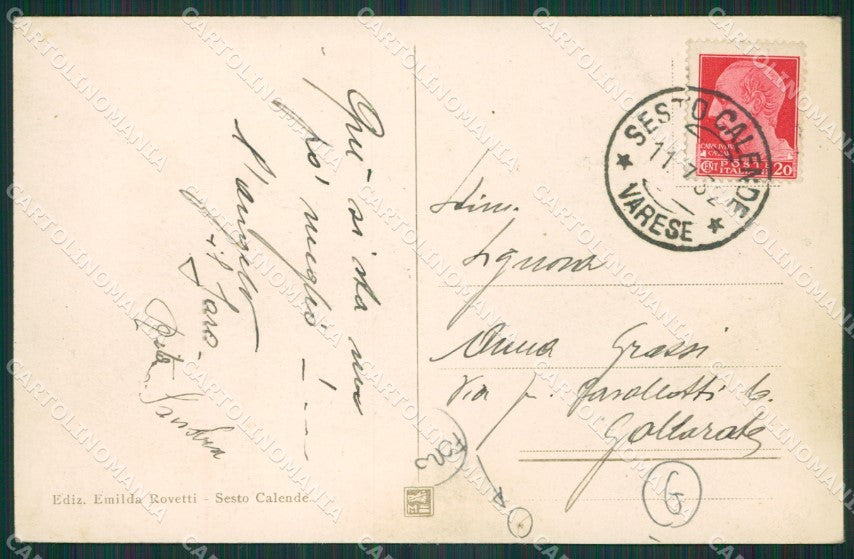 Qui si sta un
po' meglio!
L'angelo
Faro
Ediz. Emilda Rovetti - Sesto Calende
SESTO CALENDE
VARESE
POSTE
ITALIANE
CENT 20
Signora
Anna Grassi
Via F. Cavallotti 6.
Gallarate
6
CARTOLINOMANIA